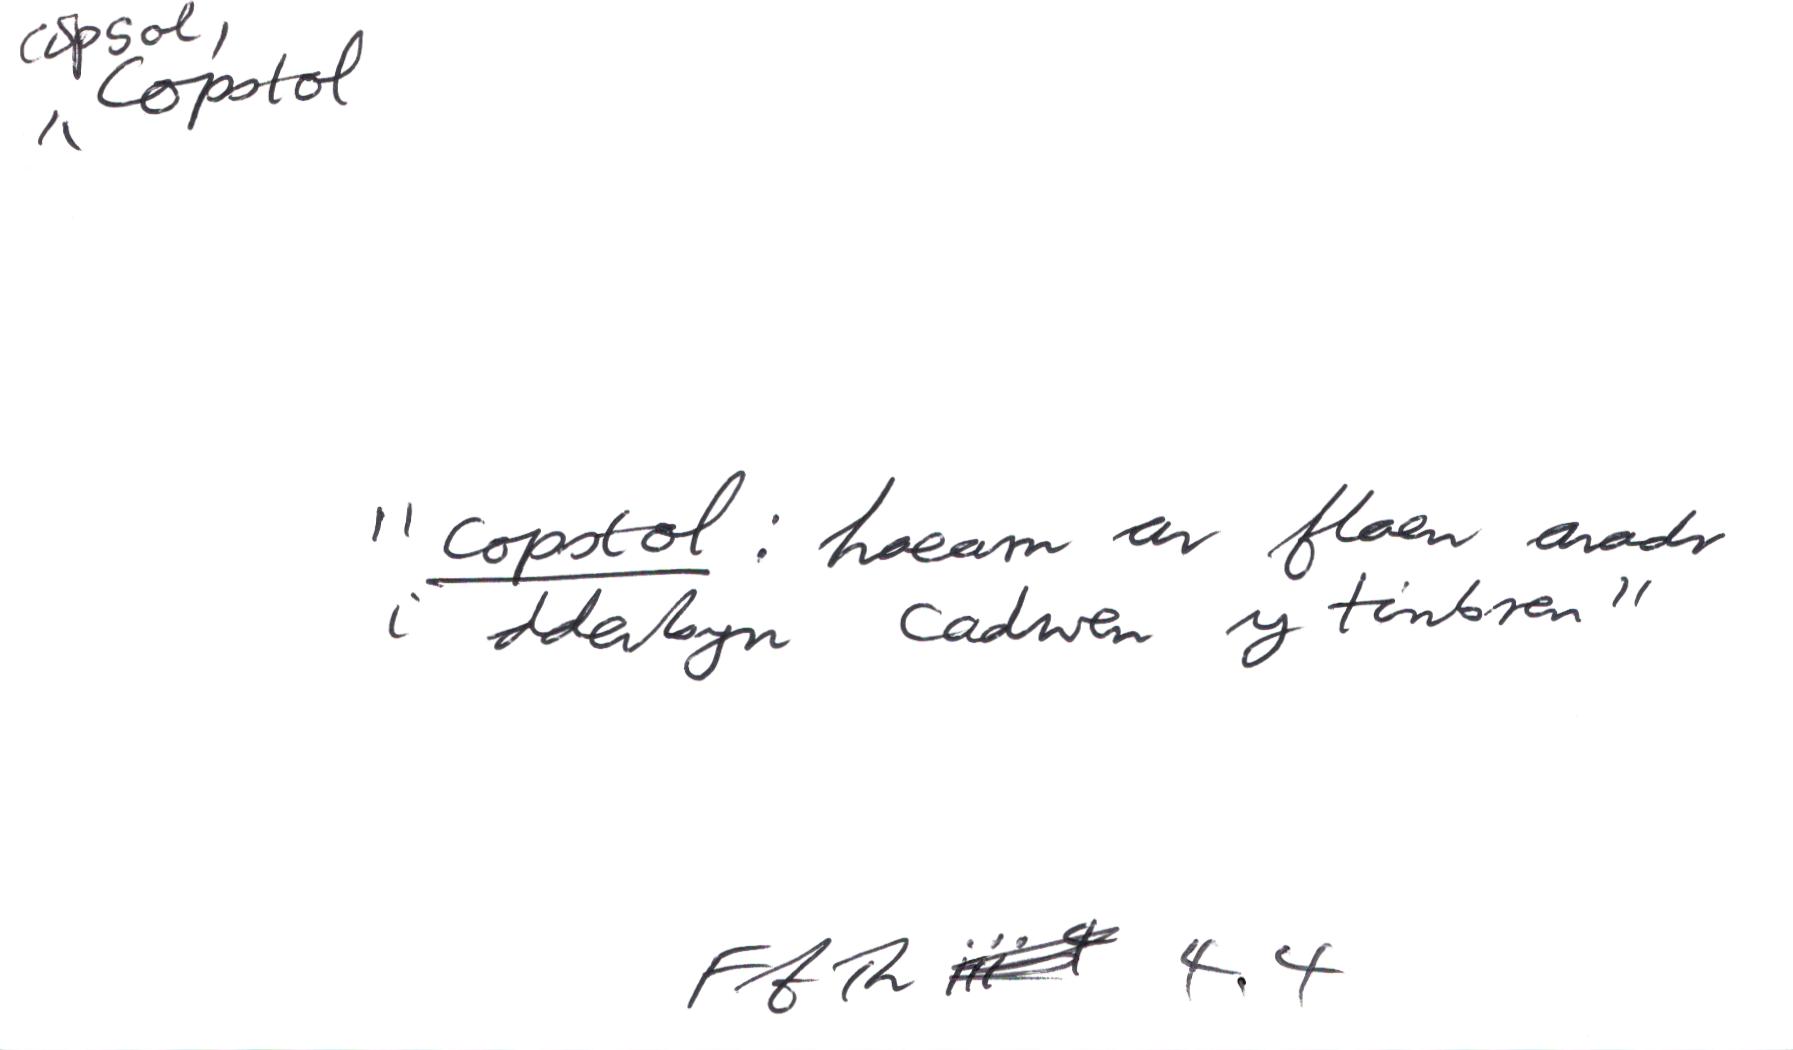 copsol,
^ Copstol
"copstol: haearn ar flaen aradr
i dderbyn cadwen y tinbren"
Ff Th 4.4